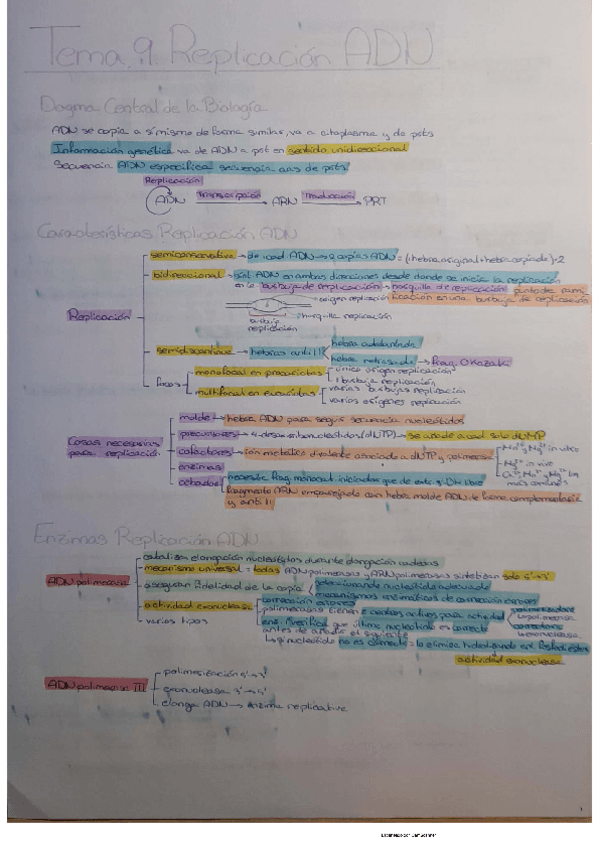 Tema 9. Replicación ADN
Dogma Central de la Biología
ADN se copia a sí mismo de forma similar, va a citoplasma y da prts
Información genética va de ADN a prt en sentido unidireccional
Secuencia ADN especifica secuencia aas de prts
Replicación
ADN Transcripción ARN Traducción PRT
Características Replicación ADN
Replicación
semiconservativa → de cad. ADN → 2 copias ADN = (1 hebra original + hebra copiada)·2
bidireccional → sint. ADN en ambas direcciones desde donde se inicia la replicación
en la burbuja de replicación → horquilla de replicación
origen replicación
horquilla replicación
burbuja
replicación
semidiscontinua → hebras anti ||
hebra adelantada
hebra retrasada → frag. Okazaki
focos
monofocal en procariotas
único origen replicación
1 burbuja replicación
multifocal en eucariotas
varias burbujas replicación
varios orígenes replicación
Cosas necesarias
para replicación
molde → hebra ADN para seguir secuencia nucleótidos
precursores → 4 desoxirribonucleótidos (dNTP) → se añade a cad. solo dNMP
cofactores → ión metálico divalente asociado a dNTP y polimerasa
in vitro
in vivo
más comunes
enzimas
cebador
fragmento ARN emparejado con hebra molde ADN de forma complementaria
y anti ||
Enzimas Replicación ADN
ADN polimerasa
catalizan elongación nucleótidos durante elongación cadenas
mecanismo universal = todas ADN polimerasas y ARN polimerasas sintetizan solo 5'→3'
aseguran fidelidad de la copia
seleccionando nucleótido adecuado
mecanismos enzimáticos de corrección errores
actividad exonucleasa
corrección errores
polimerasas tienen 2 centros activos para actividad
polimerizadora
correctora
verifica que último nucleótido es correcto
antes de añadir el siguiente
si nucleótido no es correcto = lo elimina hidrolizando enl. fosfodiéster
actividad exonucleasa
varios tipos
ADN polimerasa III
polimerización 5'→3'
exonucleasa 3'→5'
elonga ADN → enzima replicativa